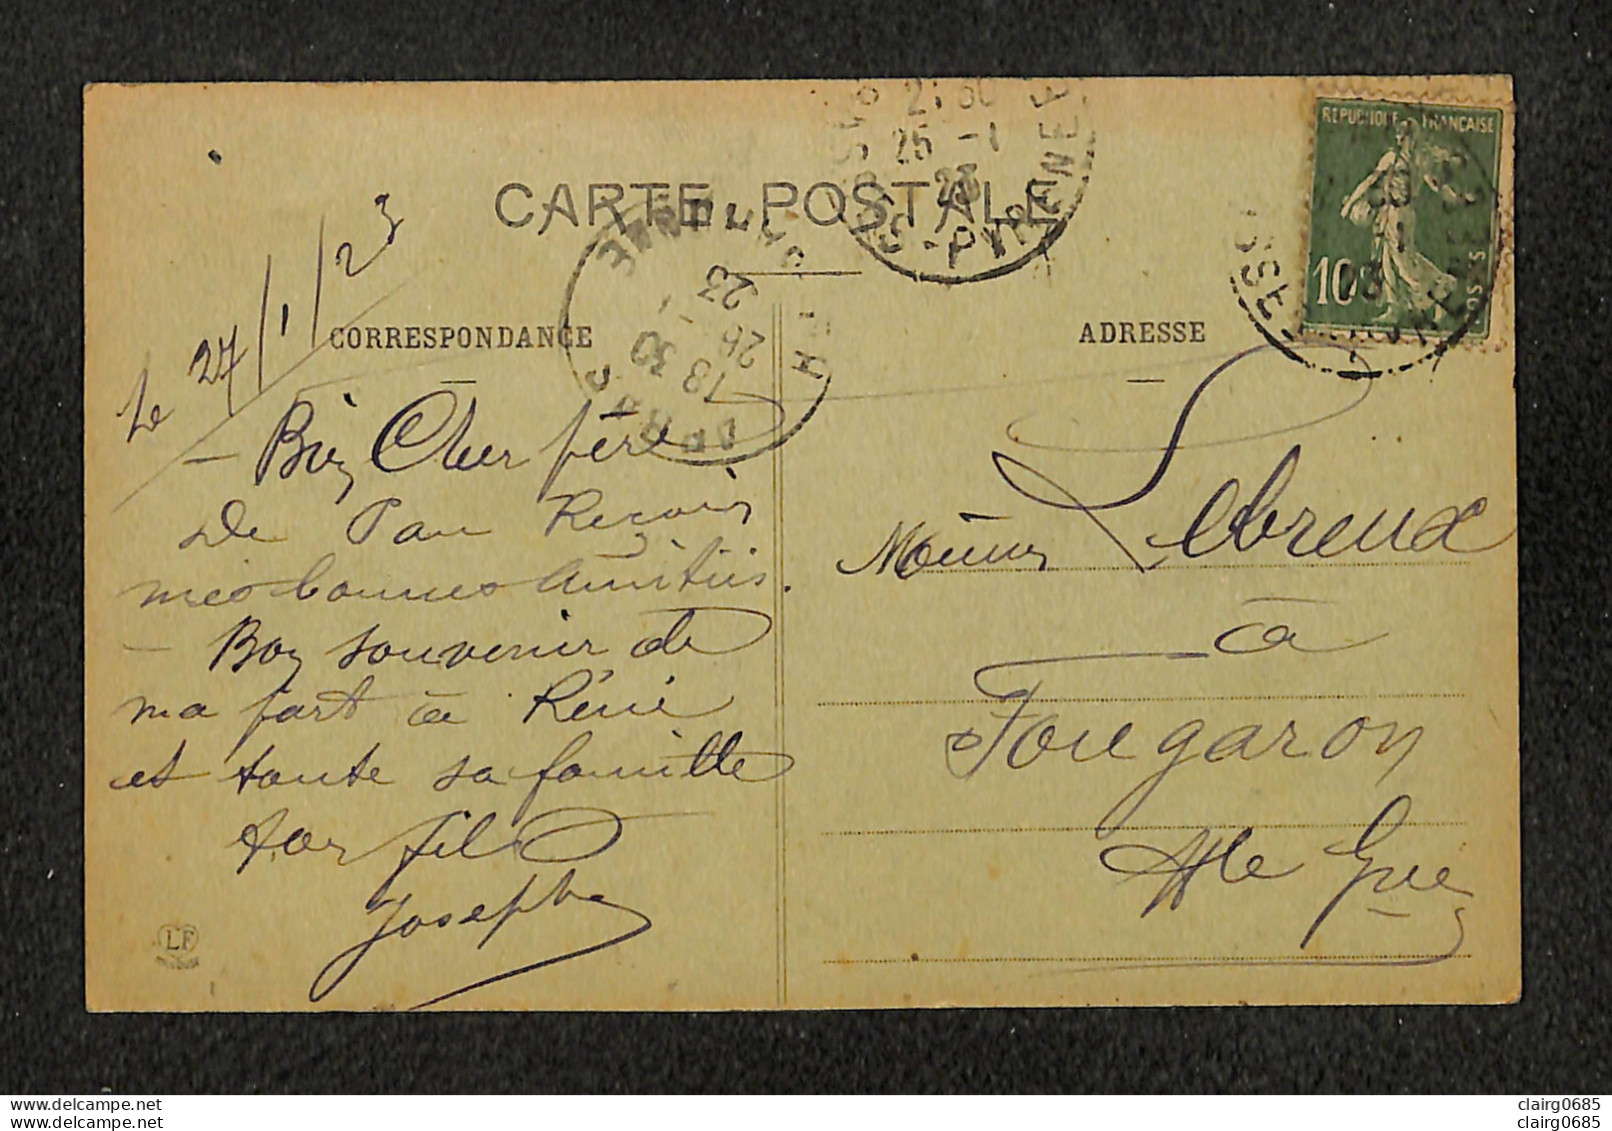 CARTE POSTALE
CORRESPONDANCE
ADRESSE
REPUBLIQUE FRANÇAISE
10
Le 27/1/23
- Biĕn Cher père
De Pau Reçois
mes bonnes Amitiés.
- Bon souvenir de
ma part à Réné
et toute sa famille
ton fils
Joseph
Lebreux
à
Fougaron
Hte Gne
LF
18 30
26 -1
23
25 -1
23
SSE-PYRENEES
clairg0685
clairg0685
clairg0685
clairg0685